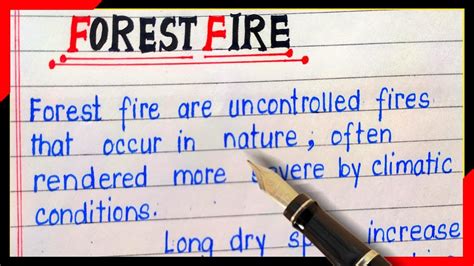 FOREST FIRE
Forest fire are uncontrolled fires
that occur in nature, often
rendered more severe by climatic
conditions.
Long dry increase